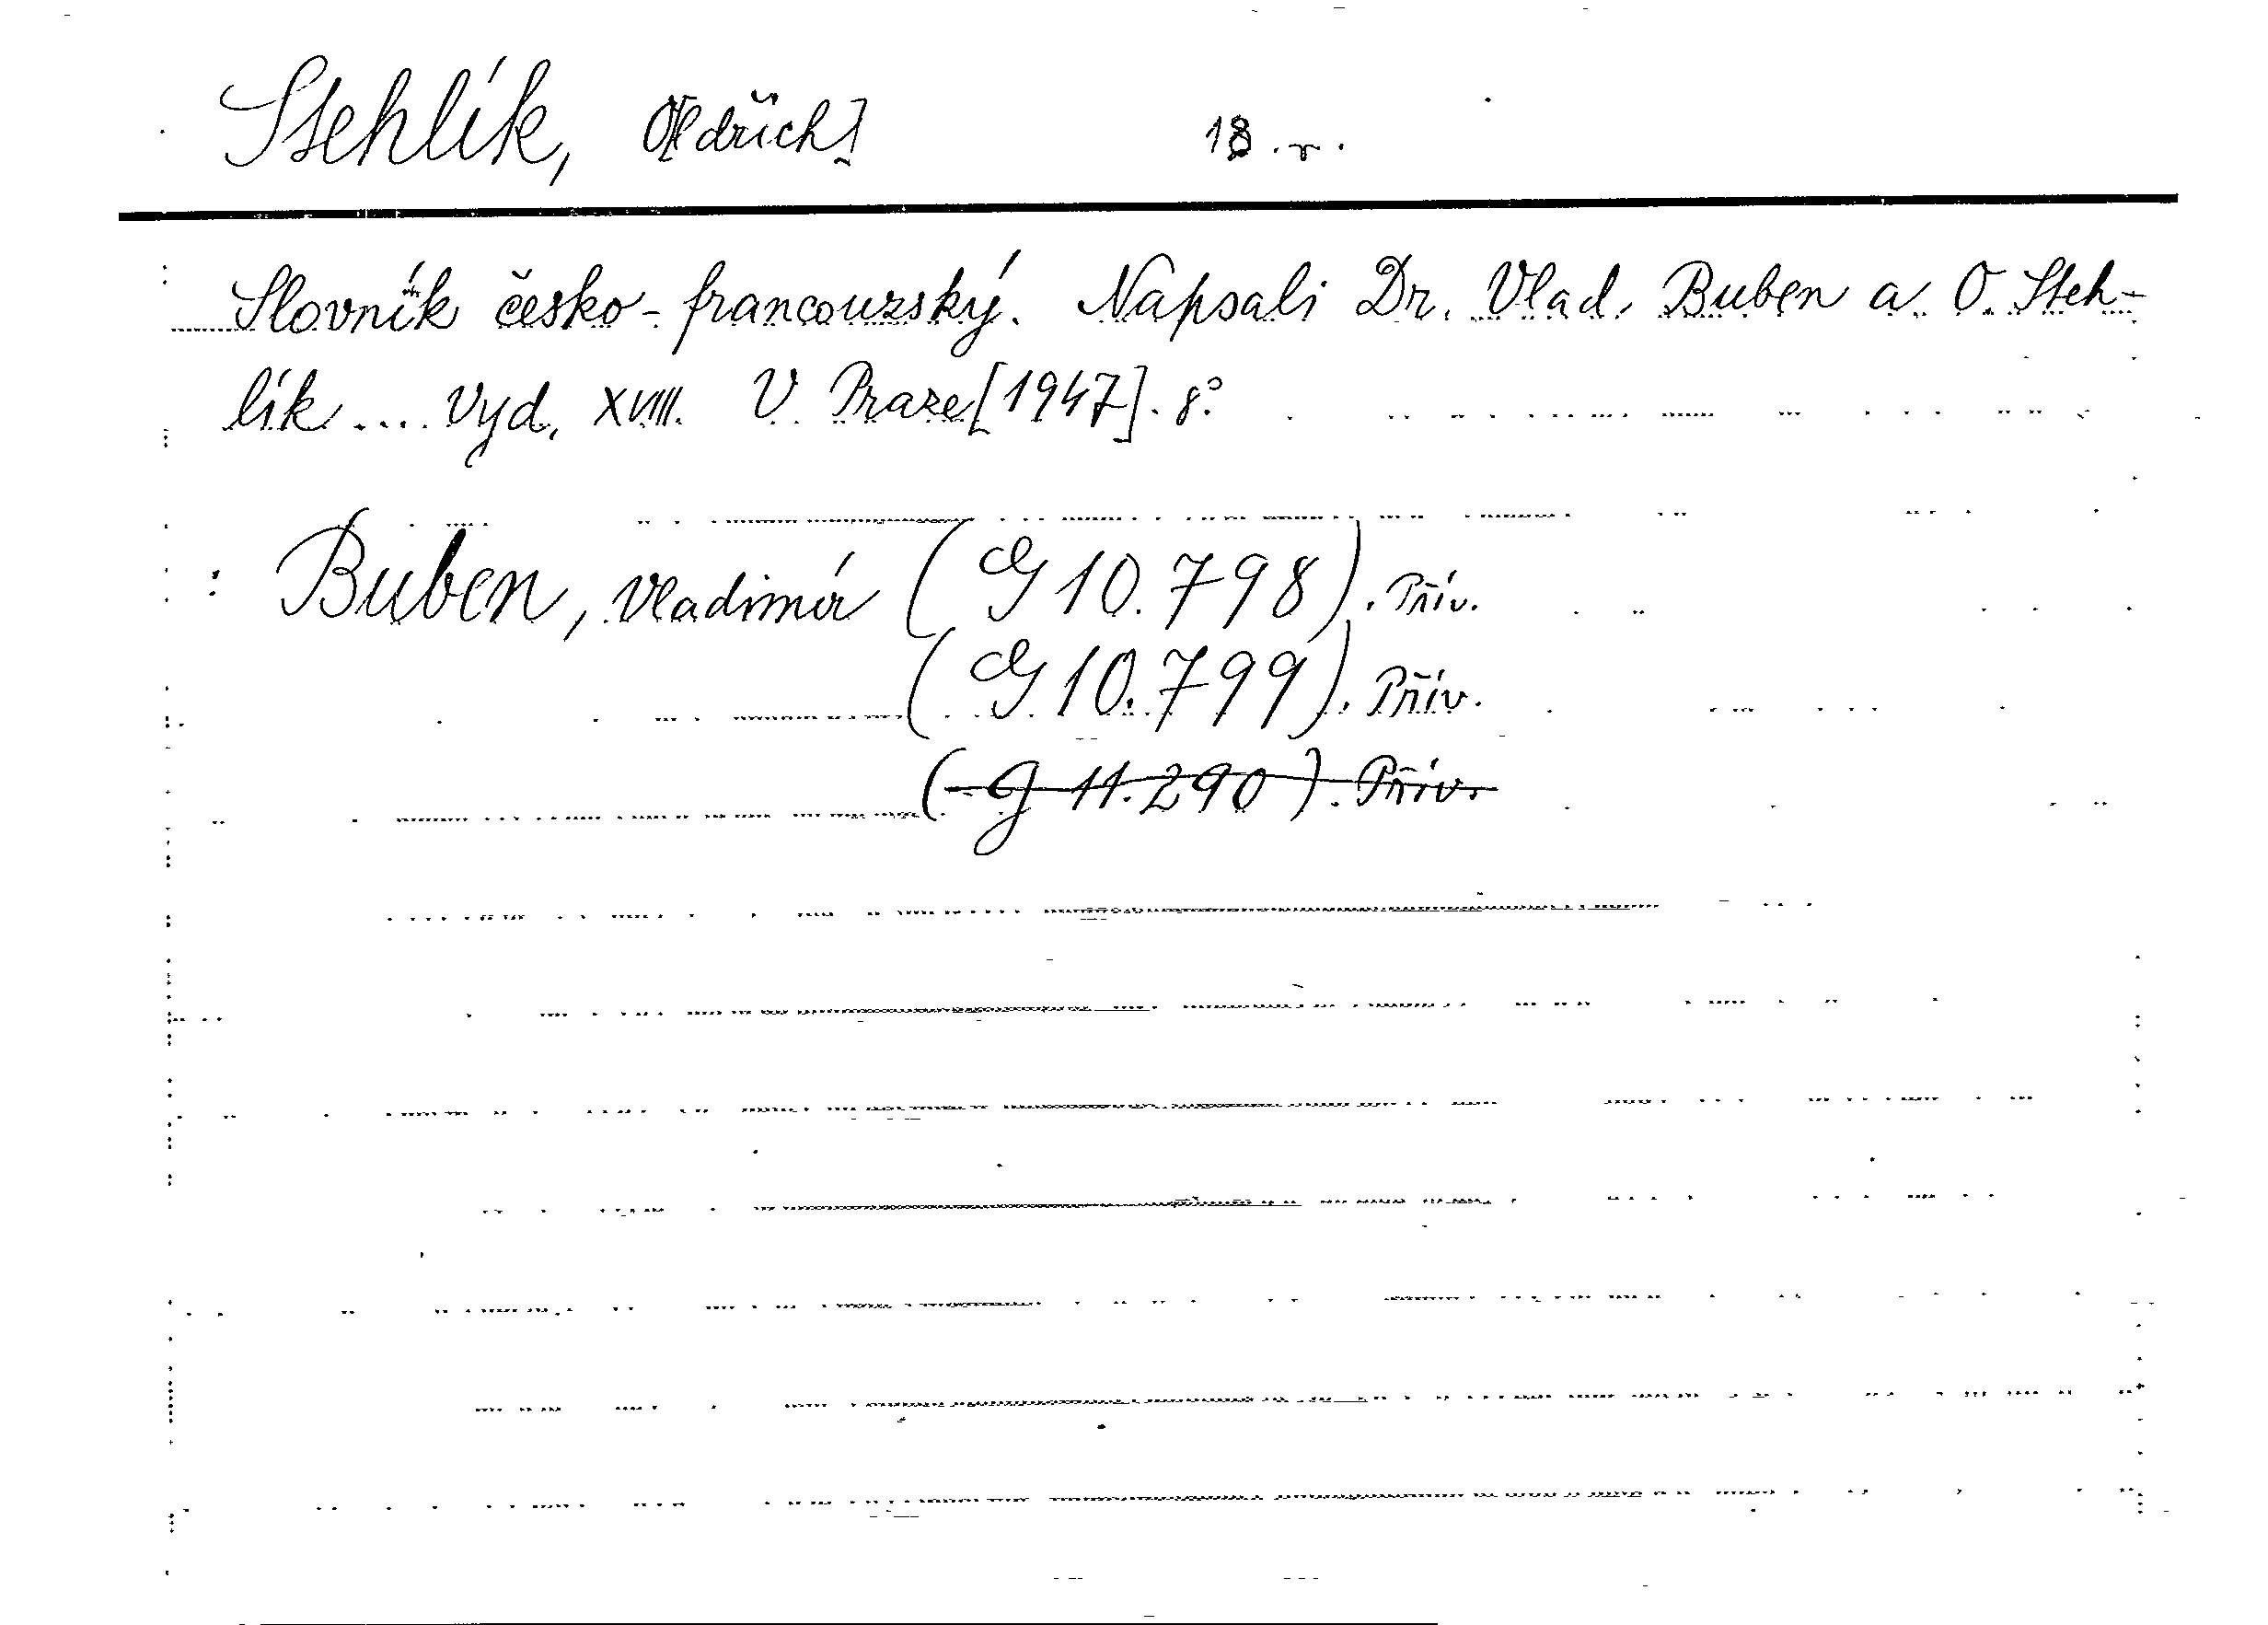 Stehlík, O[ldřich] 18.r.
Slovník česko-francouzský. Napsali Dr. Vlad. Buben a O. Steh-
lík .... Vyd. XVIII. V Praze [1947]. 8°.
: Buben, Vladimír (G 10.798). Přív.
(G 10.799). Přív.
(G 11.290). Přív.